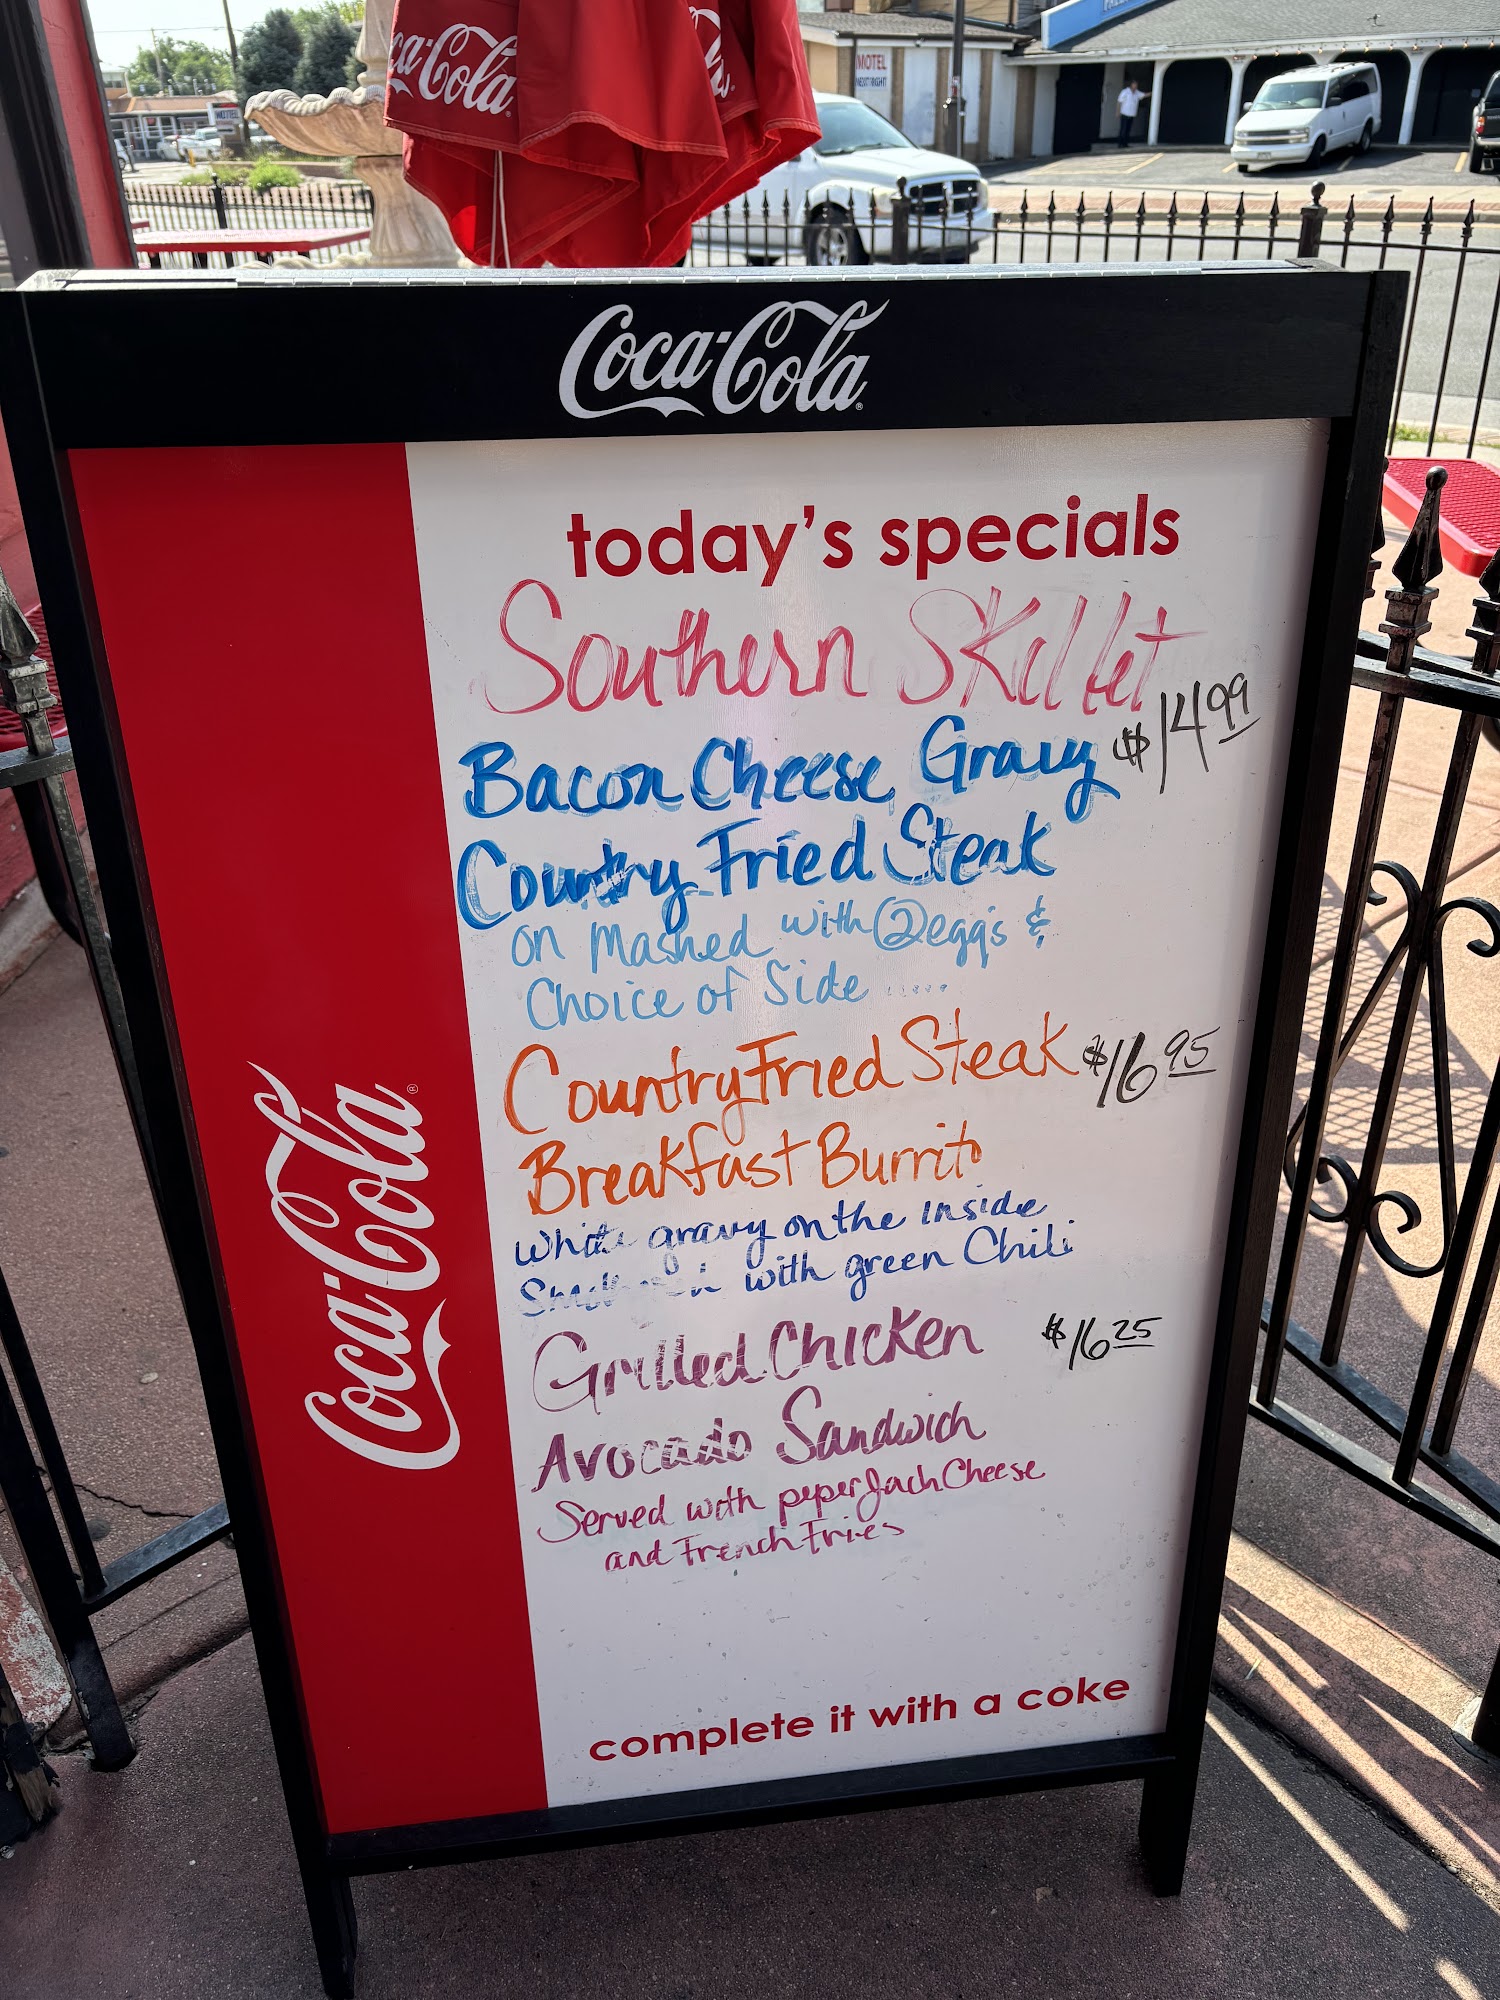 Coca-Cola
MOTEL
NEXT RIGHT
Coca-Cola
today's specials
Southern Skillet
Bacon Cheese Gravy $14.99
Country Fried Steak
on Mashed with 2 egg's &
Choice of Side .....
Country Fried Steak $16.95
Breakfast Burrito
white gravy on the inside
with green Chili
Grilled Chicken $16.25
Avocado Sandwich
Served with peper Jach Cheese
and French Fries
Coca-Cola
complete it with a coke